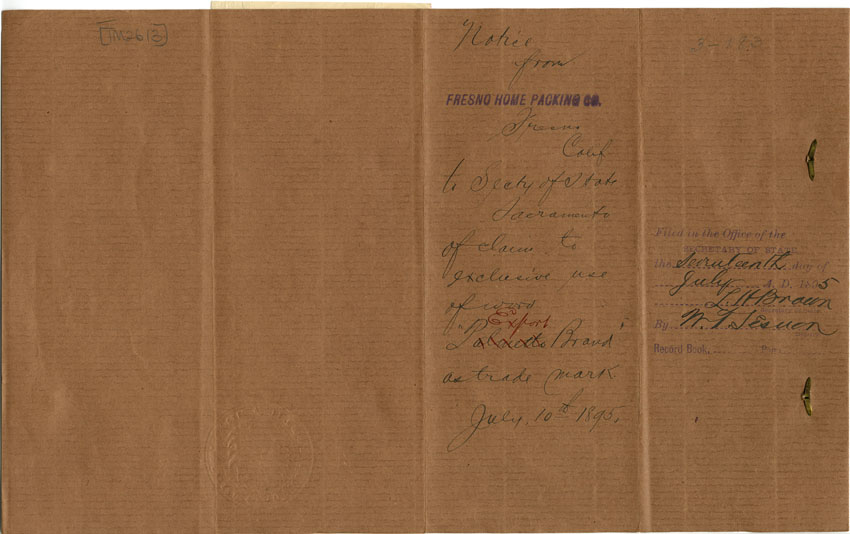 [TM2613]
Notice
from
FRESNO HOME PACKING CO.
Fresno
Calif
to Secty of State
Sacramento
of claim to
exclusive use
of word
Export
" Brand"
as trade mark
July, 10th 1895.
3-183
Filed in the Office of the
SECRETARY OF STATE
the Seventeenth day of
July A. D. 1895
L. H. Brown
By W. T. Sesnon
Record Book, Page